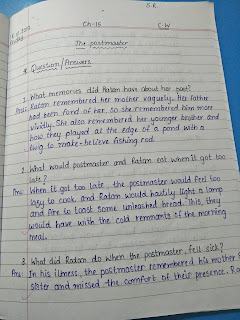 S.R
Ch-15
C.W
The postmaster
Question/Answers
1. What memories did Ratan have about her past?
Ans: Ratan remembered her mother vaguely. Her father
had been fond of her, so she remembered him more
vividly. She also remembered her younger brother and
how they played at the edge of a pond with a
twig to make-believe fishing rod.
2. What would postmaster and Ratan eat when it got too
late?
Ans: When it got too late, the postmaster would feel too
lazy to cook and Ratan would hastily light a lamp
and fire to toast some unleashed bread. This, they
would have with the cold remnants of the morning
meal.
3. What did Ratan do when the postmaster, fell sick?
Ans: In his illness, the postmaster remembered his mother &
sister and missed the comfort of their presence.